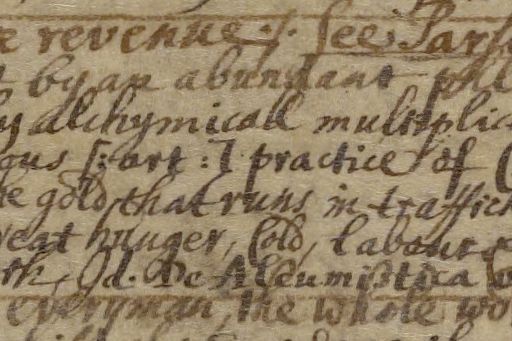 e revenue. See Par
by an abundant
y alchymicall multiplic
ous [: art :] practice of
e gold, that runs in traffick
reat hunger, Cold, labour
th, Id. De Alcumistica
everyman, the whole wo